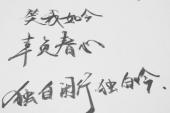 笑我如今
辜负春心
独自闲行独自吟、